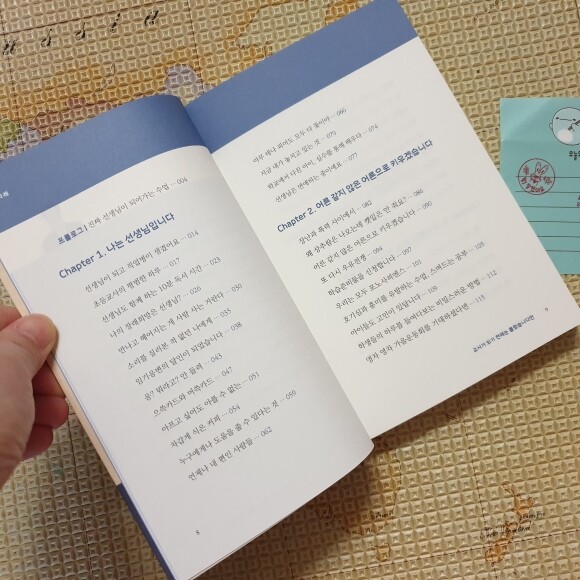 차례
프롤로그 | 진짜 선생님이 되어가는 수업 … 004
Chapter 1. 나는 선생님입니다
선생님이 되고 직업병이 생겼어요 … 014
초등교사의 평범한 하루 … 017
선생님도 함께 하는 10분 독서 시간 … 023
나의 장래희망은 선생님? … 026
만나고 헤어지는 게 사람 사는 거란다 … 030
소리를 질러본 적 없던 나에게 … 033
임기응변의 달인이 되었습니다 … 038
응? 뭐라고? 안 들려 … 043
으쓱카드와 머쓱카드 … 047
아프고 싶어도 아플 수 없는 … 051
차갑게 식은 커피 … 054
누구에게나 도움을 줄 수 있다는 것 … 059
언제나 내 편인 사람들 … 062
8
하루 해나 피어도 모두 다 꽃이야 … 066
지금 내가 놓치고 있는 것 … 070
학교에서 다친 아이, 실수를 통해 배우다 … 074
선생님은 변해하는 중이에요 … 077
Chapter 2. 어른 같지 않은 어른으로 키우겠습니다
장난과 폭력 사이에서 … 082
왜 상추랑은 나오는데 깻잎은 안 돼요? … 086
어른 같지 않은 어른으로 키우겠습니다 … 090
또 다시 우유전쟁 … 094
학습준비물을 신청합니다 … 097
우리는 모두 포노사피엔스 … 101
호기심과 흥미를 유발하는 수업, 스며드는 공부 … 105
아이들도 고민이 있답니다 … 109
학생들의 하루를 들여다보는 비밀스러운 방법 … 112
영차 영차 가을운동회를 기대하셨다면 … 115
교사가 되기 전에는 몰랐습니다만
9